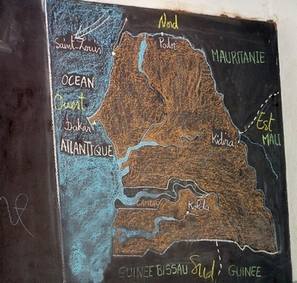 Nord
Saint-Louis
Podor
MAURITANIE
OCEAN
Ouest
Dakar
ATLANTIQUE
Est
MALI
Kidira
GAMBIE
Kolda
GUINEE BISSAU
Sud
GUINEE